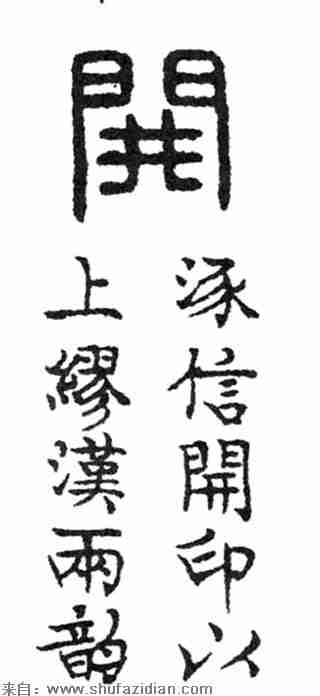 開
涿信開印以
上繆漢兩韵
来自：www.shufazidian.com